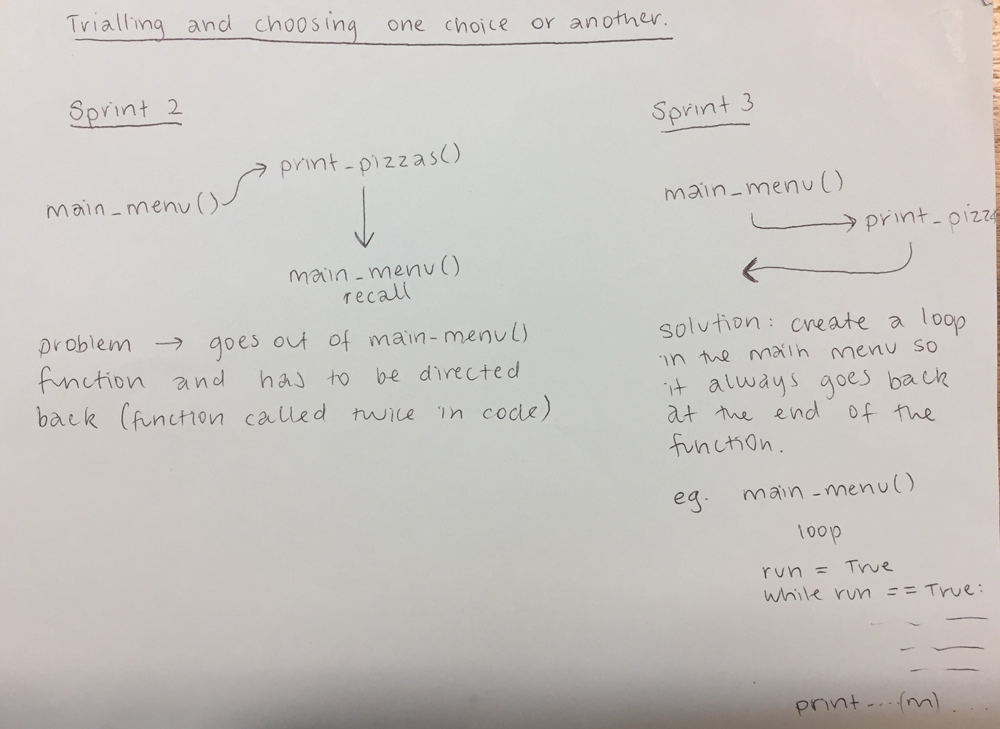 Trialling and choosing one choice or another.
Sprint 2
main_menu() → print_pizzas()
main_menu()
recall
problem → goes out of main-menu()
function and has to be directed
back (function called twice in code)
Sprint 3
main_menu()
print_pizza
solution: create a loop
in the main menu so
it always goes back
at the end of the
function.
eg. main_menu()
loop
run = True
while run == True:
print ....(m) ....